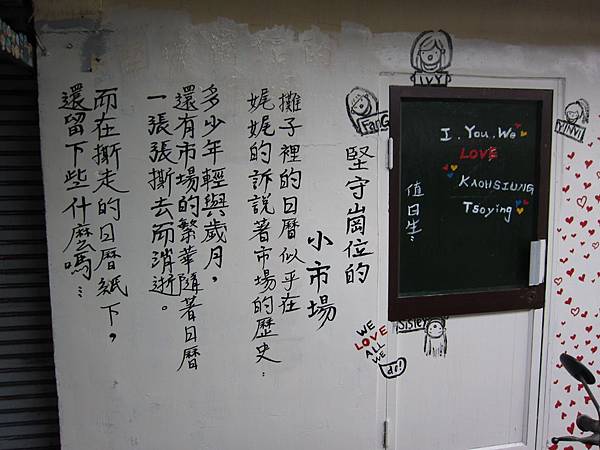 堅守崗位的
小市場
攤子裡的日曆似乎在
娓娓的訴說著市場的歷史:
多少年輕與歲月,
還有市場的繁華隨著日曆
一張張撕去而消逝。
而在撕走的日曆紙下,
還留下些什麼嗎…
IVY
FanG
YINNI
I.You.We
LOVE
KAOHSIUNG
Tsoying
值日生:
Sister
WE
LOVE
ALL
WE
do!